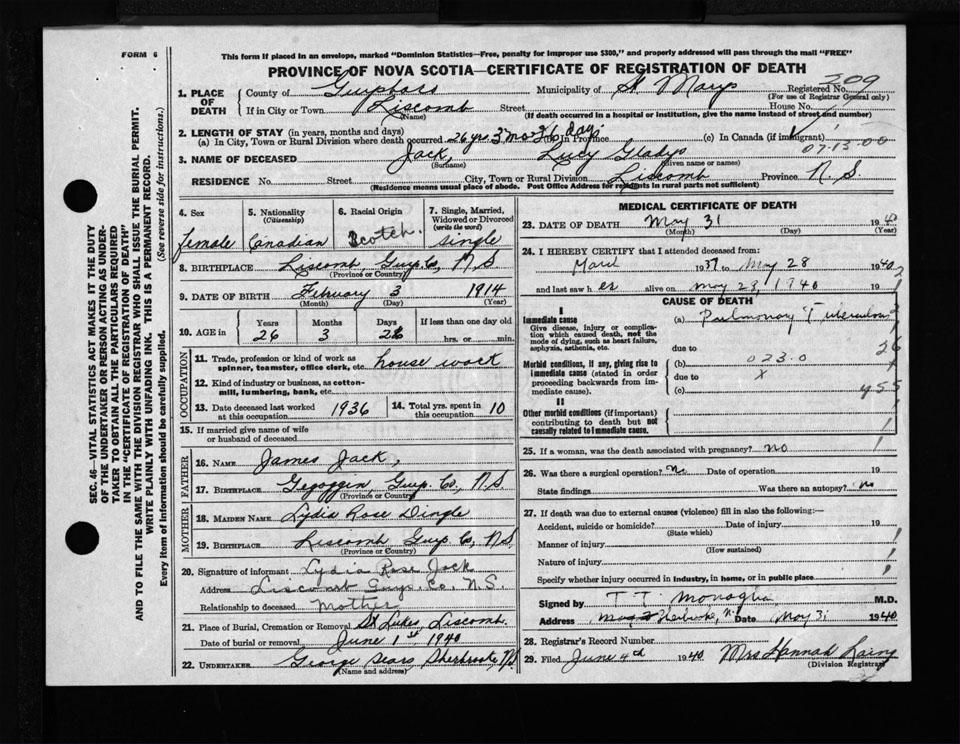 FORM 6
This form if placed in an envelope, marked "Dominion Statistics—Free, penalty for improper use $300," and properly addressed will pass through the mail "FREE"
PROVINCE OF NOVA SCOTIA—CERTIFICATE OF REGISTRATION OF DEATH
SEC. 46—VITAL STATISTICS ACT MAKES IT THE DUTY
OF THE UNDERTAKER OR PERSON ACTING AS UNDER-
TAKER TO OBTAIN ALL THE PARTICULARS REQUIRED
IN THE "CERTIFICATE OF REGISTRATION OF DEATH"
AND TO FILE THE SAME WITH THE DIVISION REGISTRAR WHO SHALL ISSUE THE BURIAL PERMIT.
WRITE PLAINLY WITH UNFADING INK. THIS IS A PERMANENT RECORD.
Every item of information should be carefully supplied. (See reverse side for instructions.)
1. PLACE OF DEATH
County of Guysboro Municipality of St Marys Registered No. 209
(For use of Registrar General only)
If in City or Town Liscomb Street House No.
(Name) (If death occurred in a hospital or institution, give the name instead of street and number)
2. LENGTH OF STAY (in years, months and days)
(a) In City, Town or Rural Division where death occurred 26 yrs. 3 mos days (b) In Province (c) In Canada (if immigrant)
07-13-00
3. NAME OF DECEASED Jack, Lucy Gladys
(Surname) (Given name or names)
RESIDENCE No. Street City, Town or Rural Division Liscomb Province N. S.
(Residence means usual place of abode. Post Office Address for residents in rural parts not sufficient)
4. Sex female
5. Nationality (Citizenship) Canadian
6. Racial Origin Scotch.
7. Single, Married, Widowed or Divorced (write the word) single
8. BIRTHPLACE Liscomb, Guy. Co, N S
(Province or Country)
9. DATE OF BIRTH February 3 1914
(Month) (Day) (Year)
10. AGE in Years Months Days If less than one day old
26 3 28 hrs. or min.
OCCUPATION
11. Trade, profession or kind of work as spinner, teamster, office clerk, etc. house work
12. Kind of industry or business, as cotton-mill, lumbering, bank, etc.
13. Date deceased last worked at this occupation 1936
14. Total yrs. spent in this occupation 10
15. If married give name of wife or husband of deceased
FATHER
16. NAME James Jack,
17. BIRTHPLACE Gegoggin, Guy. Co., N. S.
(Province or Country)
MOTHER
18. MAIDEN NAME Lydia Rose Dingle
19. BIRTHPLACE Liscomb Guy. Co, N S
(Province or Country)
20. Signature of informant Lydia Rose Jack
Address Liscomb Guy. Co. N. S.
Relationship to deceased Mother
21. Place of Burial, Cremation or Removal St Lukes, Liscomb.
Date of burial or removal June 1st 1940
22. UNDERTAKER George Sears Sherbrooke, N S
(Name and address)
MEDICAL CERTIFICATE OF DEATH
23. DATE OF DEATH May 31 1940
(Month) (Day) (Year)
24. I HEREBY CERTIFY that I attended deceased from:
March 1937 to May 28 1940
and last saw h er alive on May 23, 1940
CAUSE OF DEATH
I
Immediate cause
Give disease, injury or complication which caused death, not the mode of dying, such as heart failure, asphyxia, asthenia, etc.
(a) Pulmonary Tuberculosis
due to
26
Morbid conditions, if any, giving rise to immediate cause (stated in order proceeding backwards from immediate cause).
(b) 023.0
due to x
(c) 455
II
Other morbid conditions (if important) contributing to death but not causally related to immediate cause.
25. If a woman, was the death associated with pregnancy? no
26. Was there a surgical operation? No Date of operation 19
State findings Was there an autopsy? no
27. If death was due to external causes (violence) fill in also the following:—
Accident, suicide or homicide? Date of injury 19
(State which)
Manner of injury
(How sustained)
Nature of injury
Specify whether injury occurred in industry, in home, or in public place
Signed by T T Monaghan M.D.
Address Sherbrooke, N. Date May 31 1940
28. Registrar's Record Number
29. Filed June 4th 1940 Mrs Hannah Laing
(Division Registrar)